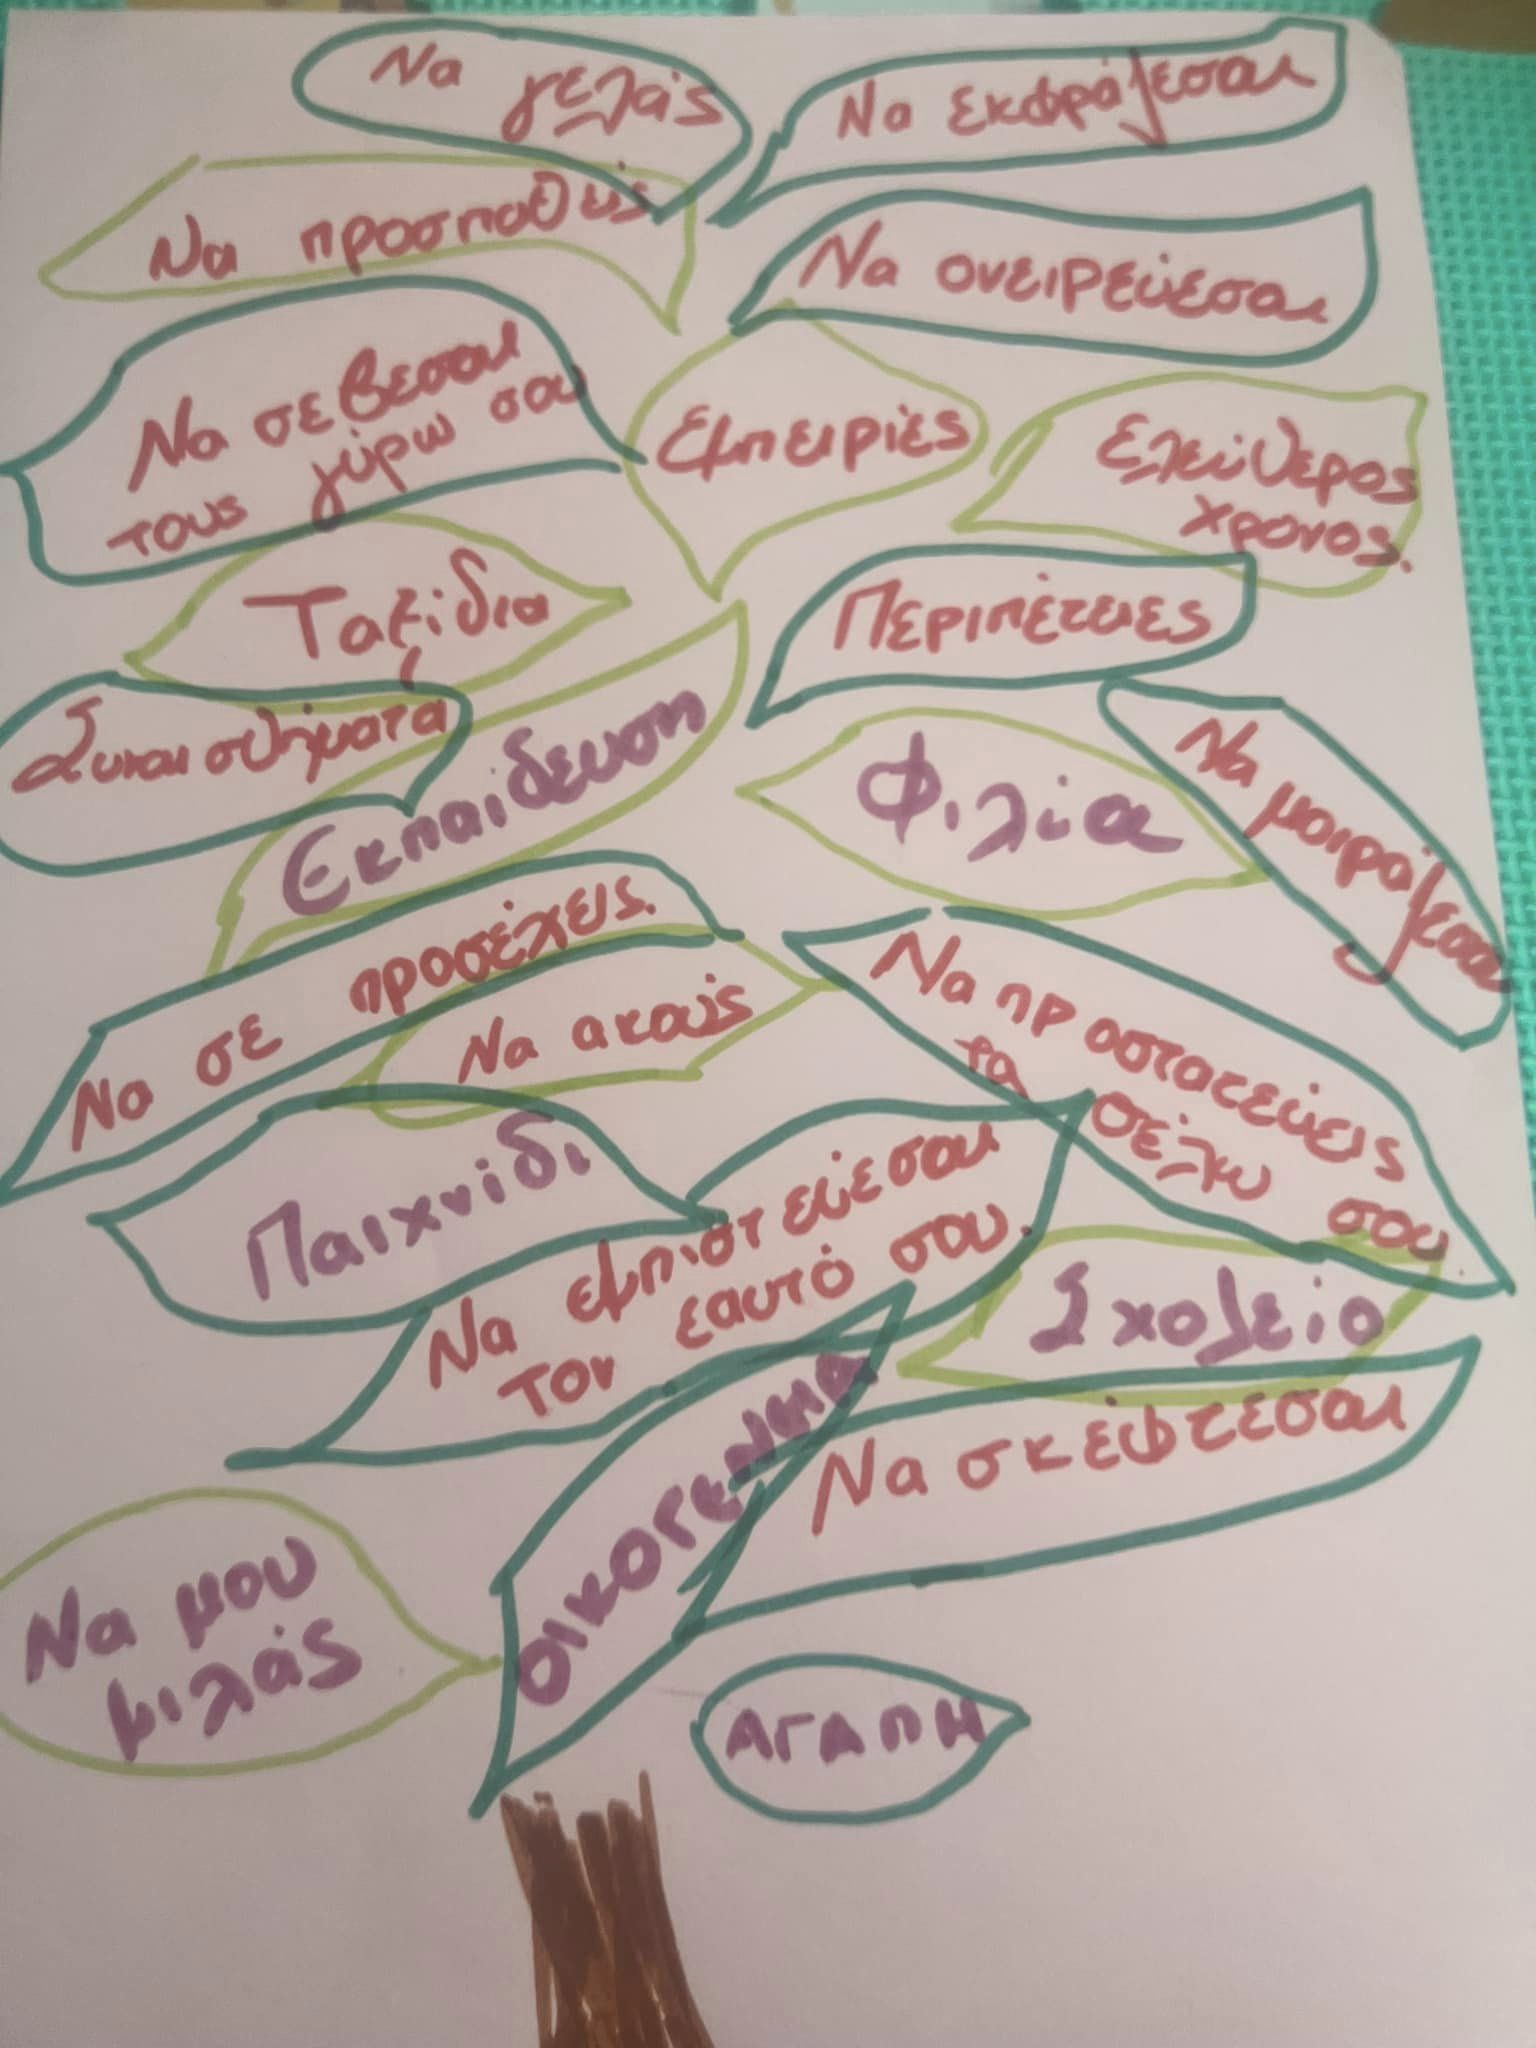 Να γελάς
Να εκφράζεσαι
Να προσπαθείς
Να ονειρεύεσαι
Να σέβεσαι
τους γύρω σου
Εμπειρίες
Ελεύθερος
χρόνος.
Ταξίδια
Περιπέτειες
Συναισθήματα
Εκπαίδευση
Φιλία
Να μοιράζεσαι
Να σε προσέχεις.
Να ακούς
Να προστατεύεις
τα θέλω σου
Παιχνίδι
Να εμπιστεύεσαι
τον εαυτό σου.
Σχολείο
ΟΙΚΟΓΕΝΕΙΑ
Να σκέφτεσαι
Να μου
μιλάς
ΑΓΑΠΗ